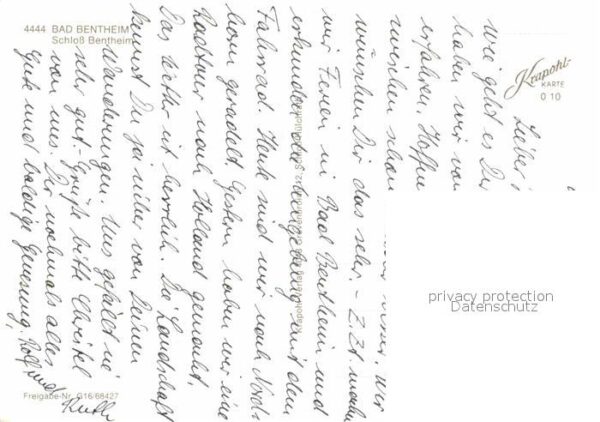 4444 BAD BENTHEIM
Schloß Bentheim
Krapohl-
KARTE
0 10
Lieber
wie geht es Dir
haben wir von
erfahren. Hoffen
zwischen schon
wir
wünschen Dir das sehr. - Z. Zt. machen
wir Ferien in Bad Bentheim und
erkunden die Umgebung mit dem
Fahrrad. Heute sind wir nach Nord-
horn geradelt. Gestern haben wir eine
Radtour nach Holland gemacht.
Das Wetter ist herrlich. Die Landschaft
kennst Du ja sicher von Deinen
Wanderungen. Uns gefällt sie
sehr gut. Grüße bitte Christel
von uns. Dir nochmals alles
Gute und baldige Genesung,
Rolf und
Ruth
Krapohl-Verlag
Freigabe-Nr. G16/68427
privacy protection
Datenschutz